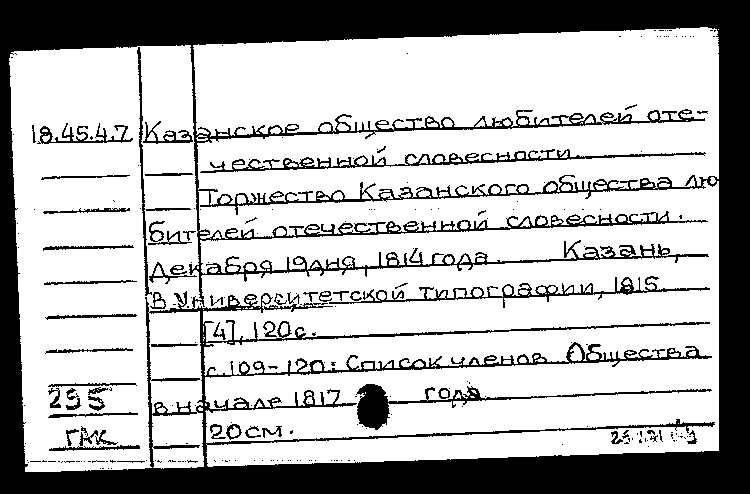 18.45.4.7 Казанское общество любителей оте-
чественной словесности.
Торжество Казанского общества лю
бителей отечественной словесности.
Декабря 19 дня, 1814 года. Казань,
В Университетской типографии, 1815.
[4], 120с.
с.109-120: Список членов Общества
295 в начале 1817 года
ГАК 20см.